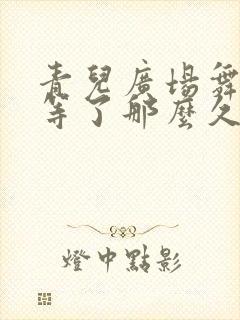 青兒廣場舞
等了那麼久
燈中點影